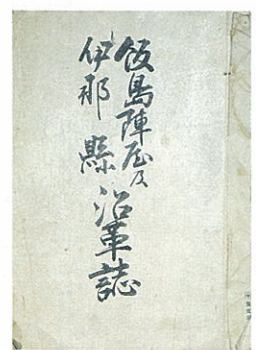 飯島陣屋及
伊那縣沿革誌